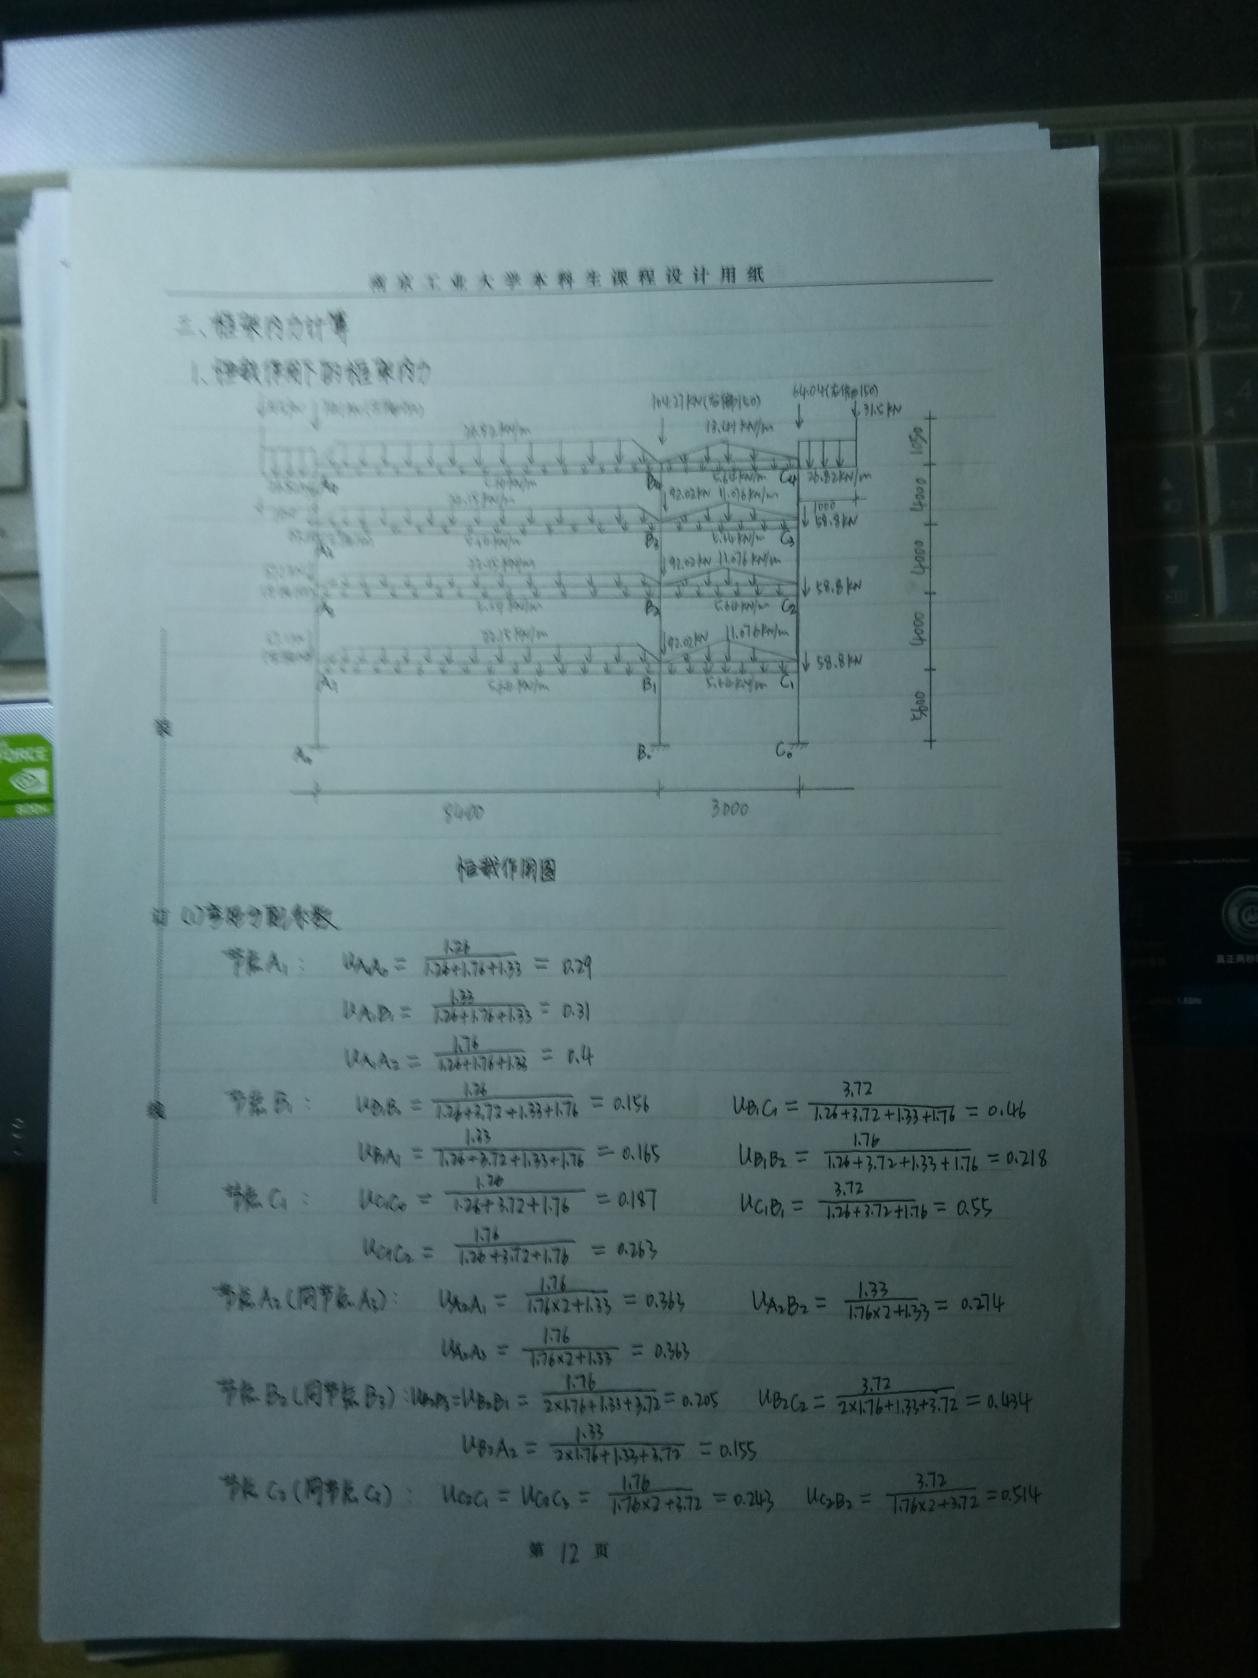 南京工业大学本科生课程设计用纸
三、框架内力计算
1、恒载作用下的框架内力
104.27KN(右偏150) 64.04(左偏150)
31.5KN
26.82KN/m 13.41KN/m
B4 5.64KN/m C4 26.82KN/m
92.02KN 11.076KN/m
1000
58.8KN
B3 5.64KN/m C3
92.02KN 11.076KN/m
22.15KN/m
58.8KN
5.64KN/m B2 5.64KN/m C2
22.15KN/m 92.02KN 11.076KN/m
58.8KN
A1 5.64KN/m B1 5.64KN/m C1
A0 B0 C0
1050
4000
4000
4000
5600
8400 3000
恒载作用图
装
订
线
(1)弯矩分配系数
节点A1: UA1A0 = 1.26/(1.26+1.76+1.33) = 0.29
UA1B1 = 1.33/(1.26+1.76+1.33) = 0.31
UA1A2 = 1.76/(1.26+1.76+1.33) = 0.4
节点B1: UB1B0 = 1.26/(1.26+3.72+1.33+1.76) = 0.156 UB1C1 = 3.72/(1.26+3.72+1.33+1.76) = 0.46
UB1A1 = 1.33/(1.26+3.72+1.33+1.76) = 0.165 UB1B2 = 1.76/(1.26+3.72+1.33+1.76) = 0.218
节点C1: UC1C0 = 1.26/(1.26+3.72+1.76) = 0.187 UC1B1 = 3.72/(1.26+3.72+1.76) = 0.55
UC1C2 = 1.76/(1.26+3.72+1.76) = 0.263
节点A2(同节点A3): UA2A1 = 1.76/(1.76×2+1.33) = 0.363 UA2B2 = 1.33/(1.76×2+1.33) = 0.274
UA2A3 = 1.76/(1.76×2+1.33) = 0.363
节点B2(同节点B3): UB2B3=UB2B1 = 1.76/(2×1.76+1.33+3.72) = 0.205 UB2C2 = 3.72/(2×1.76+1.33+3.72) = 0.434
UB2A2 = 1.33/(2×1.76+1.33+3.72) = 0.155
节点C2(同节点C3): UC2C1 = UC2C3 = 1.76/(1.76×2+3.72) = 0.243 UC2B2 = 3.72/(1.76×2+3.72) = 0.514
第 12 页